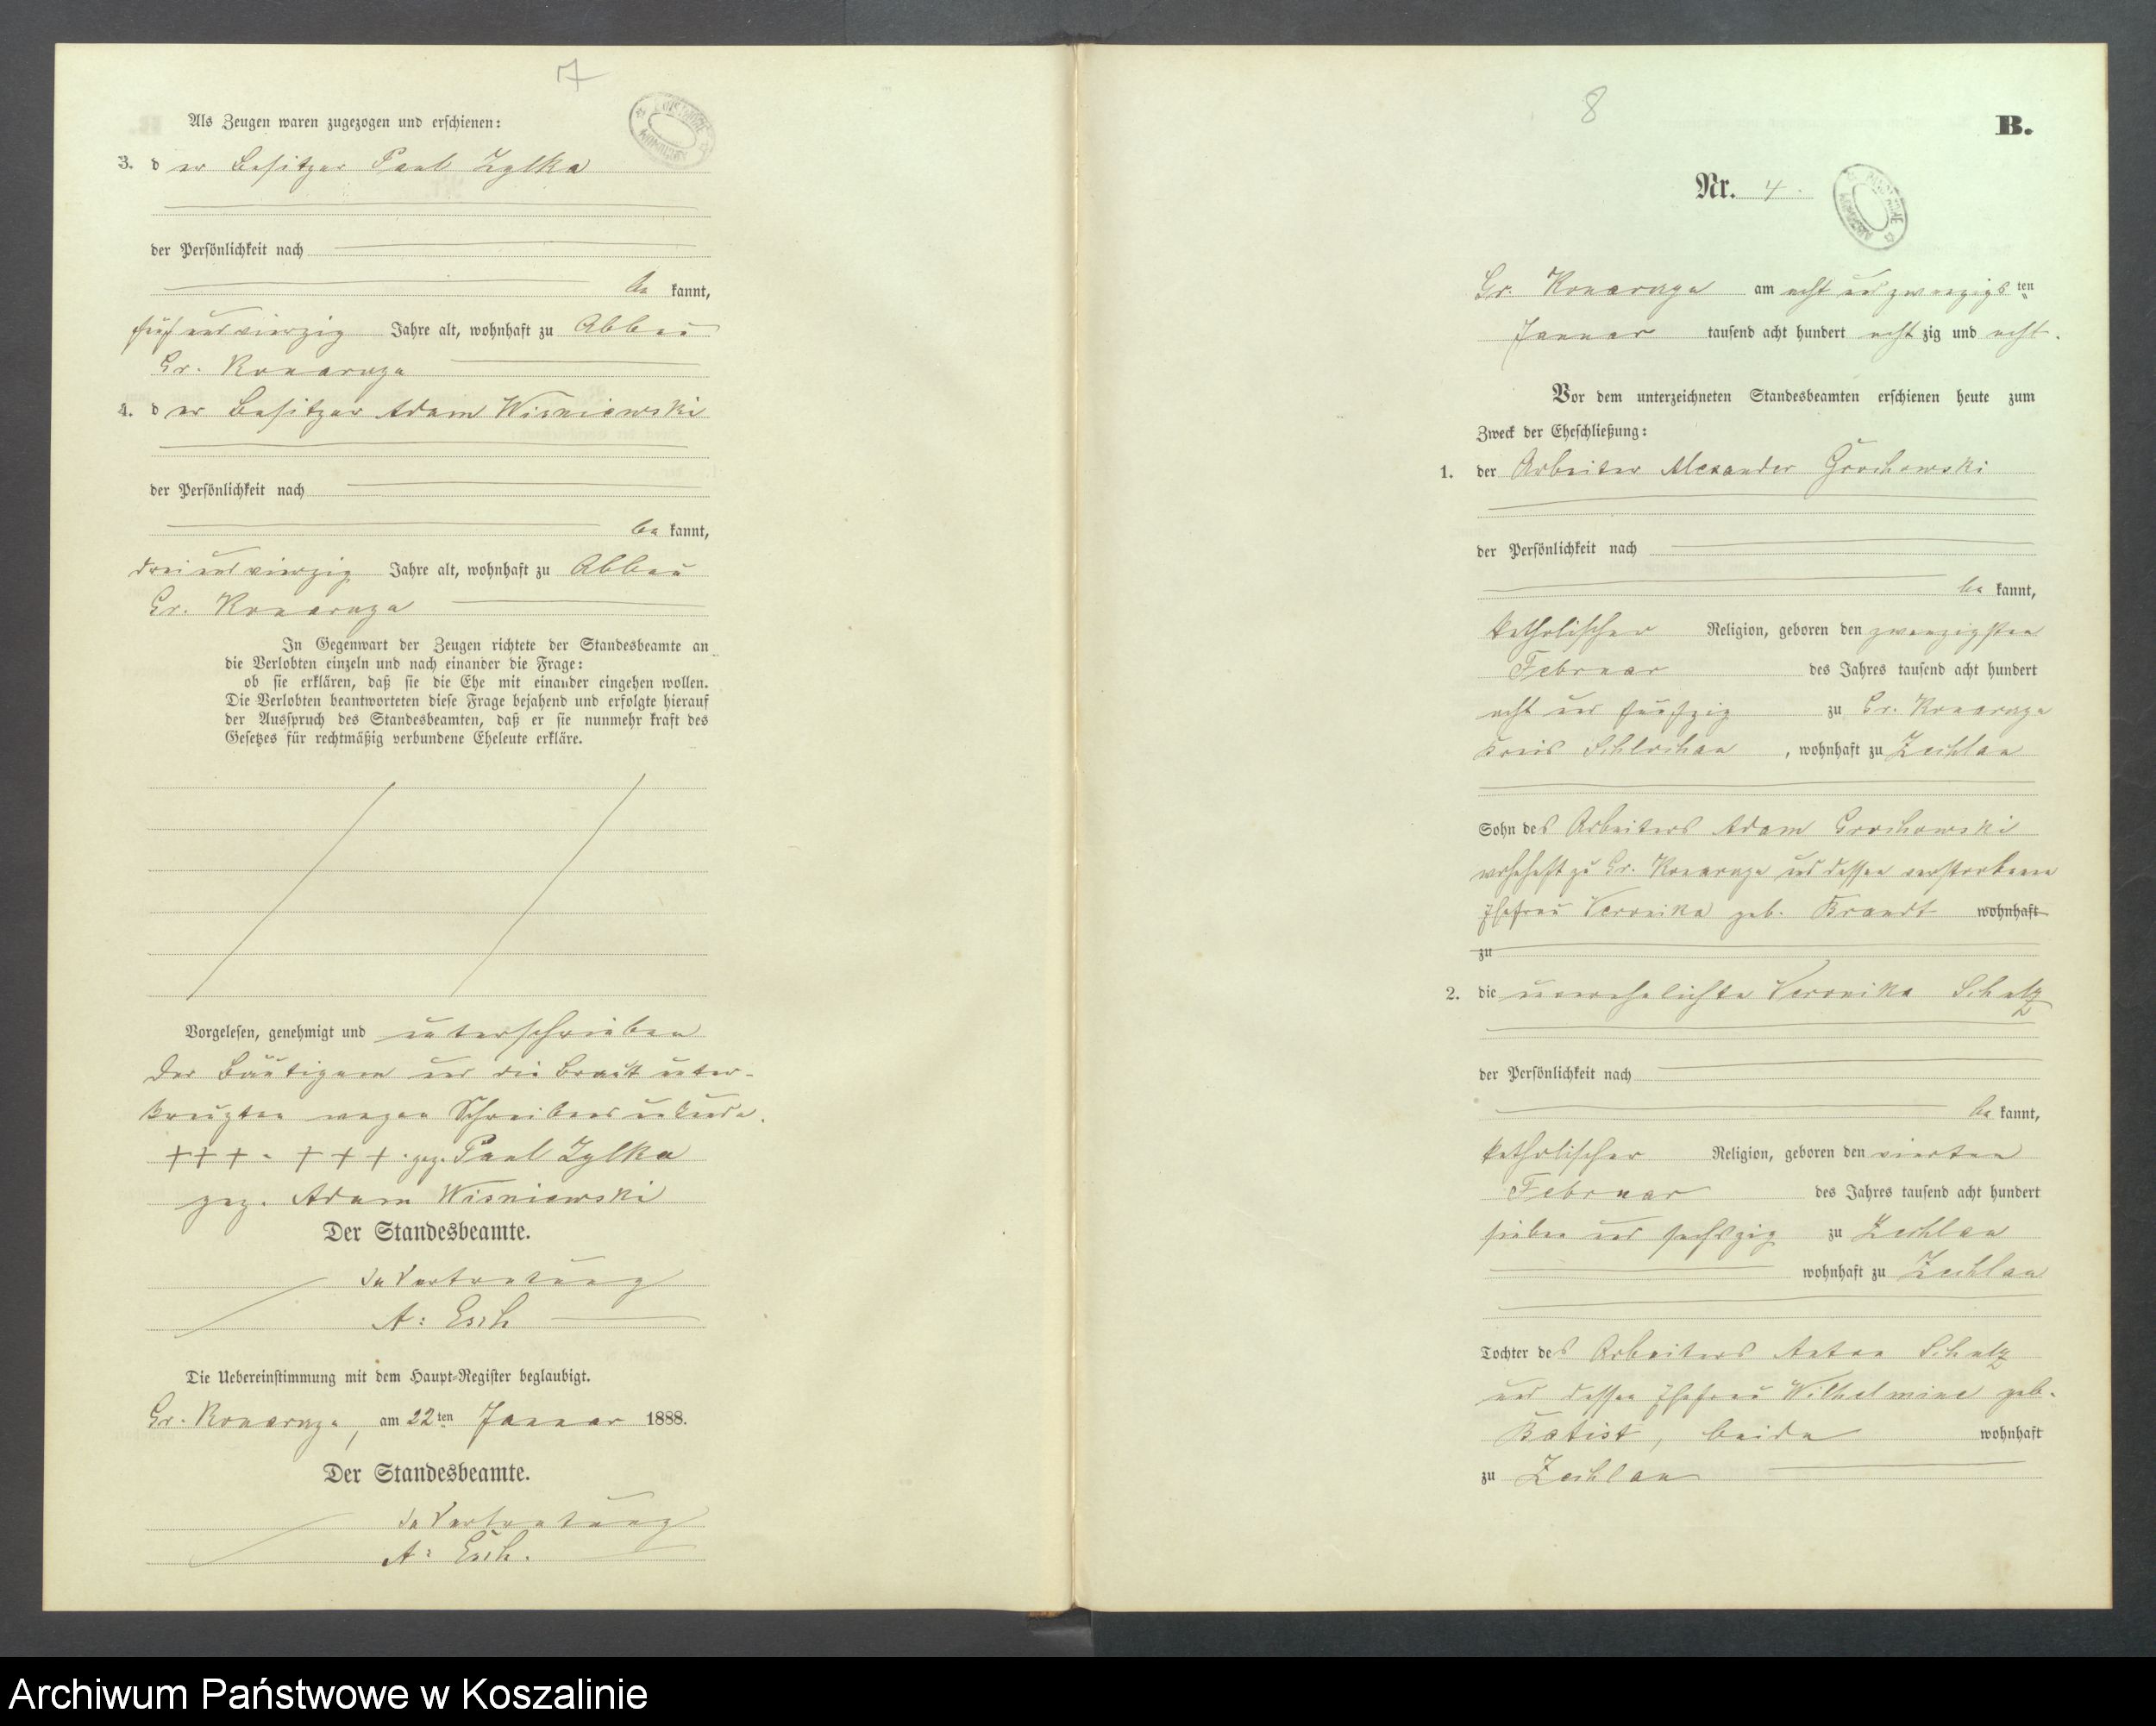 7
Als Zeugen waren zugezogen und erschienen:
3. der Besitzer Paul Zylka
der Persönlichkeit nach
be kannt,
fünf und vierzig Jahre alt, wohnhaft zu Abbau
Gr. Konarzyn
4. der Besitzer Adam Wisniewski
der Persönlichkeit nach
be kannt,
drei und vierzig Jahre alt, wohnhaft zu Abbau
Gr. Konarzyn
In Gegenwart der Zeugen richtete der Standesbeamte an
die Verlobten einzeln und nach einander die Frage:
ob sie erklären, daß sie die Ehe mit einander eingehen wollen.
Die Verlobten beantworteten diese Frage bejahend und erfolgte hierauf
der Ausspruch des Standesbeamten, daß er sie nunmehr kraft des
Gesetzes für rechtmäßig verbundene Eheleute erkläre.
Vorgelesen, genehmigt und unterschrieben
Der Bäutigam und die Braut unter-
kreuzten wegen Schreibensunkunde.
+++ . +++ . gez. Paul Zylka
gez. Adam Wisniewski
Der Standesbeamte.
In Vertretung
A: Esch
Die Uebereinstimmung mit dem Haupt-Register beglaubigt.
Gr. Konarzyn, am 22ten Januar 1888.
Der Standesbeamte.
In Vertretung
A: Esch.
8
B.
Nr. 4.
Gr. Konarzyn am acht und zwanzigsten
Januar tausend acht hundert acht zig und acht.
Vor dem unterzeichneten Standesbeamten erschienen heute zum
Zweck der Eheschließung:
1. der Arbeiter Alexander Grochowski
der Persönlichkeit nach
be kannt,
katholischer Religion, geboren den zwanzigsten
Februar des Jahres tausend acht hundert
acht und fünfzig zu Gr. Konarzyn
Kreis Schlochau, wohnhaft zu Zechlau
Sohn des Arbeiters Adam Grochowski
wohnhaft zu Gr. Konarzyn und dessen verstorbene
Ehefrau Veronika geb. Brandt wohnhaft
zu
2. die unverehelichte Veronika Schulz
der Persönlichkeit nach
be kannt,
katholischer Religion, geboren den vierten
Februar des Jahres tausend acht hundert
sieben und sechszig zu Zechlau
wohnhaft zu Zechlau
Tochter des Arbeiters Anton Schulz
und dessen Ehefrau Wilhelmine geb.
Batist, beide wohnhaft
zu Zechlau
Archiwum Państwowe w Koszalinie